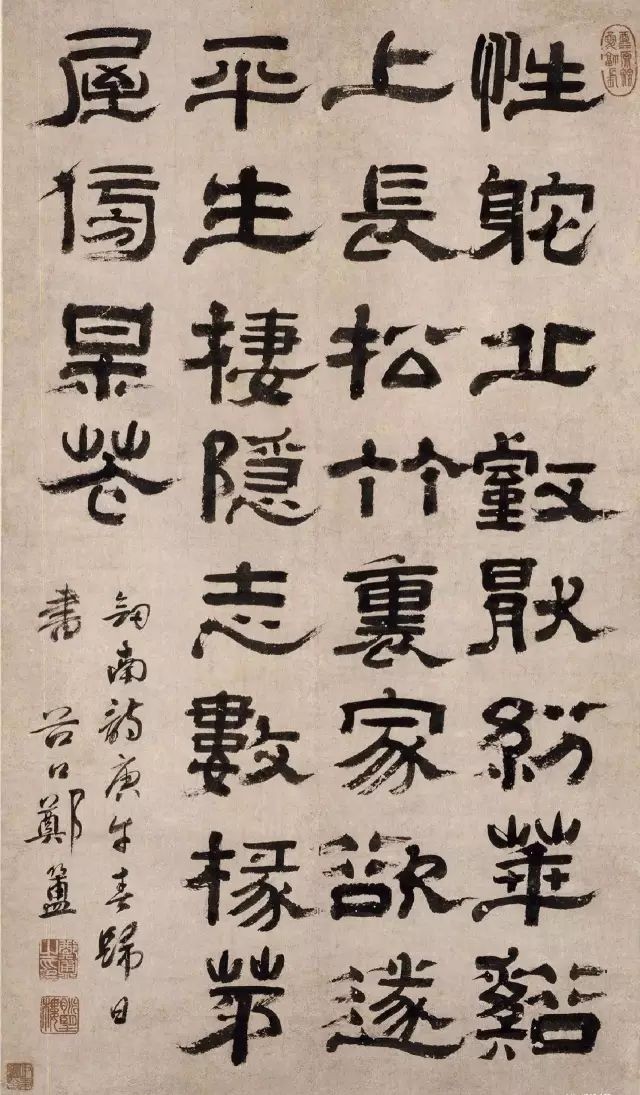 性躭丘壑厭紛華谿
上長松竹裏家欲遂
平生棲隱志數椽茅
屋傍某花
劍南詩庚午春歸日
書 谷口鄭簠